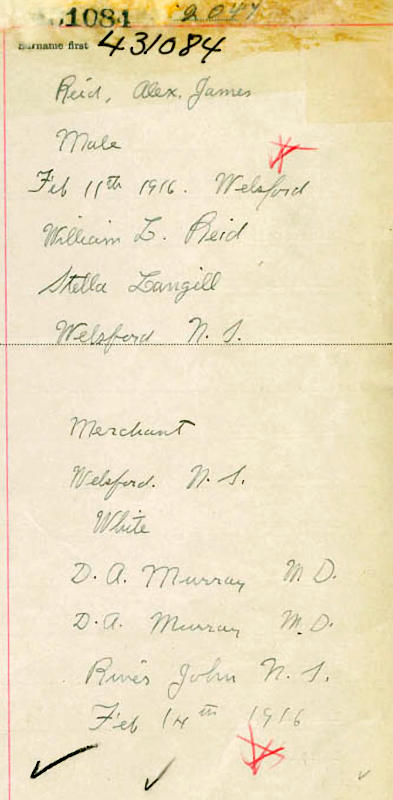 1084 2044
Surname first 431084
Reid, Alex. James
Male
Feb 11th 1916. Welsford
William L. Reid
Stella Langill
Welsford N. S.
Merchant
Welsford. N. S.
White
D. A. Murray M D.
D. A. Murray M. D.
River John N. S.
Feb 14th 1916